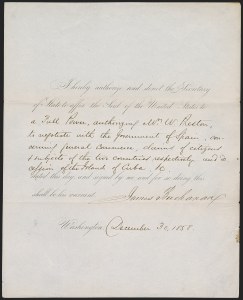 I hereby authorize and direct the Secretary
of State to affix the Seal of the United States to
a Full Power, authorizing Wm. W. Preston,
to negotiate with the Government of Spain, con-
cerning general commerce, claims of citizens
& subjects of the two countries respectively and
cession of the Island of Cuba &c.
dated this day and signed by me and for so doing this
shall be his warrant.
James Buchanan
Washington, December 31, 1858